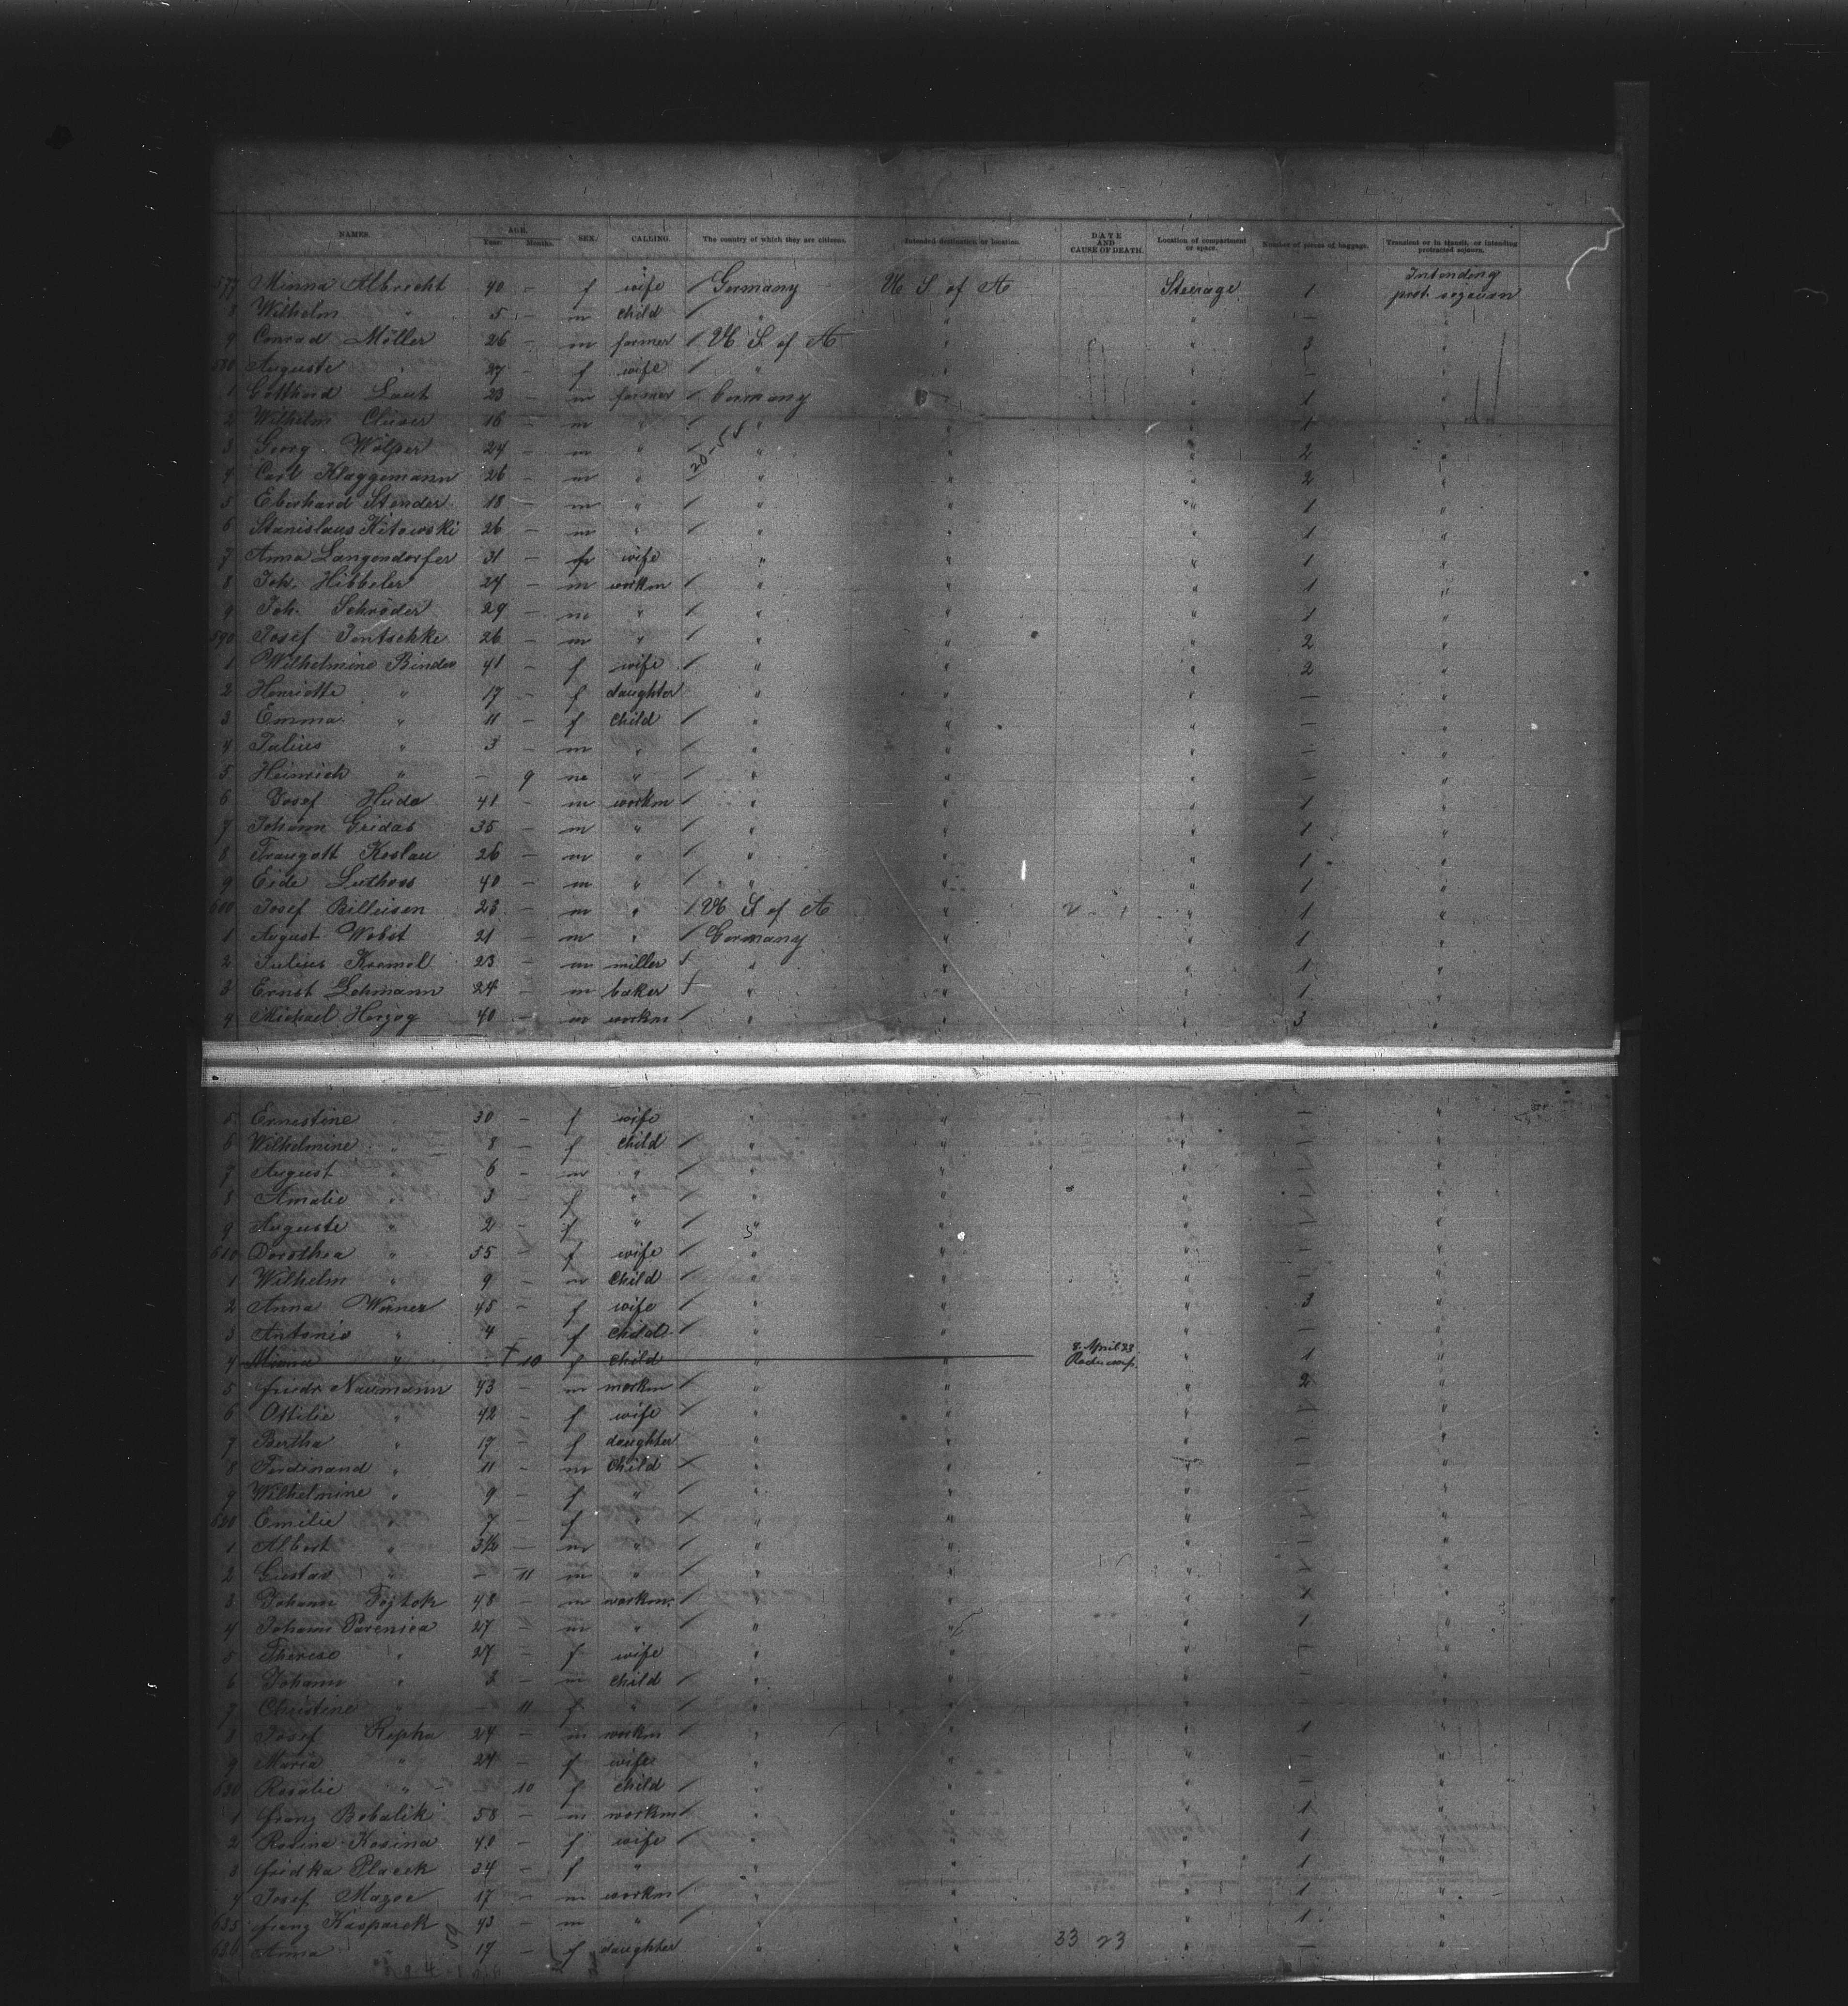 NAMES. AGE. Years. Months. SEX. CALLING. The country of which they are citizens. Intended destination or location. DATE AND CAUSE OF DEATH. Location of compartment or space. Number of pieces of baggage. Transient or in transit, or intending protracted sojourn.
577 Minna Albrecht 40 - f wife / Germany U. S of A Steerage 1 Intending prot. sojourn
8 Wilhelm " 5 - m child / " " — "
9 Conrad Möller 26 - m farmer / U. S. of A " " 3 "
580 Auguste " 27 - f wife / " " " - "
1 Gotthard Laut 23 - m farmer / Germany " " 1 "
2 Wilhelm Clüver 16 - m " / " " " 1 "
3 Georg Wölper 24 - m " " " " 2 "
4 Carl Klaggemann 26 - m " " " " 2 "
5 Eberhard Stender 18 - m " / " " " 1 "
6 Stanislaus Kitowski 26 - m " / " " " 1 "
7 Anna Langendorfer 31 - f wife " " " 1 "
8 Joh. Hibbeler 24 - m workm / " " " 1 "
9 Joh. Schröder 29 - m " / " " " 1 "
590 Josef Jentschke 26 - m " / " " " 2 "
1 Wilhelmine Binder 41 - f wife / " " " 2 "
2 Henriette " 17 - f daughter " " " — "
3 Emma " 11 - f child / " " " — "
4 Julius " 3 - m " / " " " - "
5 Heinrich " - 9 m " / " " " - "
6 Josef Huda 41 - m workm / " " " 1 "
7 Johann Gridas 35 - m " / " " " 1 "
8 Traugott Koslau 26 - m " / " " " 1 "
9 Eide Luthoss 40 - m " / " " " 1 "
600 Josef Billeisen 23 - m " / U. S of A " " 1 "
1 August Wobst 21 - m " / Germany " " 1 "
2 Julius Kramol 23 - m miller " " " 1 "
3 Ernst Lehmann 24 - m baker " " " 1 "
4 Michael Herzog 40 - m workm / " " " 3 "
5 Ernestine " 30 - f wife " " " - "
6 Wilhelmine " 8 - f child / " " " - "
7 August " 6 - m " / " " " - "
8 Amalie " 3 - f " / " " " - "
9 Auguste " 2 - f " / " " " - "
610 Dorothea " 55 - f wife / " " " - "
1 Wilhelm " 9 - m child / " " " - "
2 Anna Werner 45 - f wife / " " " 3 "
3 Antonie " 4 - f child / " " " 1 "
4 Minna " - † 10 f child " " 8. April 83 " 1 "
5 friedr Naumann 43 - m workm / " " " 2 "
6 Ottilie " 42 - f wife / " " " - "
7 Bertha " 17 - f daughter " " " - "
8 Ferdinand " 11 - m child / " " " - "
9 Wilhelmine " 9 - f " / " " " - "
620 Emilie " 7 - f " / " " " - "
1 Albert " 3½ - m " / " " " - "
2 Gustav " - 11 m " / " " " "
3 Johann Fojtek 48 - m workm. / " " " 1 "
4 Johann Parenica 27 - m " / " " " 1 "
5 Therese " 27 - f wife " " " - "
6 Johann " 3 - m child / " " " - "
7 Christine " - 11 f " / " " " - "
8 Josef Repka 24 - m workm / " " " 1 "
9 Maria " 24 - f wife " " " - "
630 Rosalie " - 10 f child / " " " - "
1 franz Bobalik 58 - m workm / " " " 1 "
2 Rosina Kosina 41 - f wife / " " " 1 "
3 fridka Placek 34 - f " / " " " 1 "
4 Josef Mazoc 17 - m workm / " " " 1 "
635 franz Kasparek 43 - m " / " " " 1 "
636 Anna 17 - f daughter " " 33 23 " — "